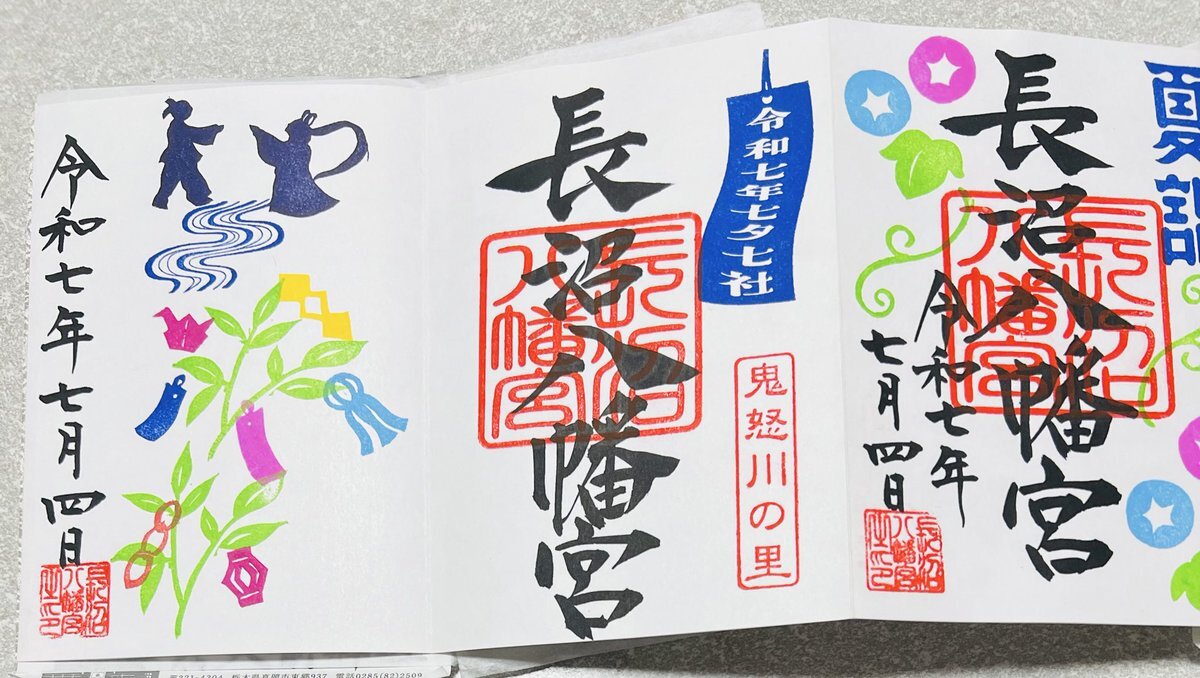 夏詣
長沼八幡宮
長沼
八幡宮
令和七年
七月四日
長沼
八幡宮
之印
令和七年七夕七社
鬼怒川の里
長沼八幡宮
長沼
八幡宮
令和七年七月四日
長沼
八幡宮
之印
321-4304 栃木県真岡市東郷937 電話0285(82)2509